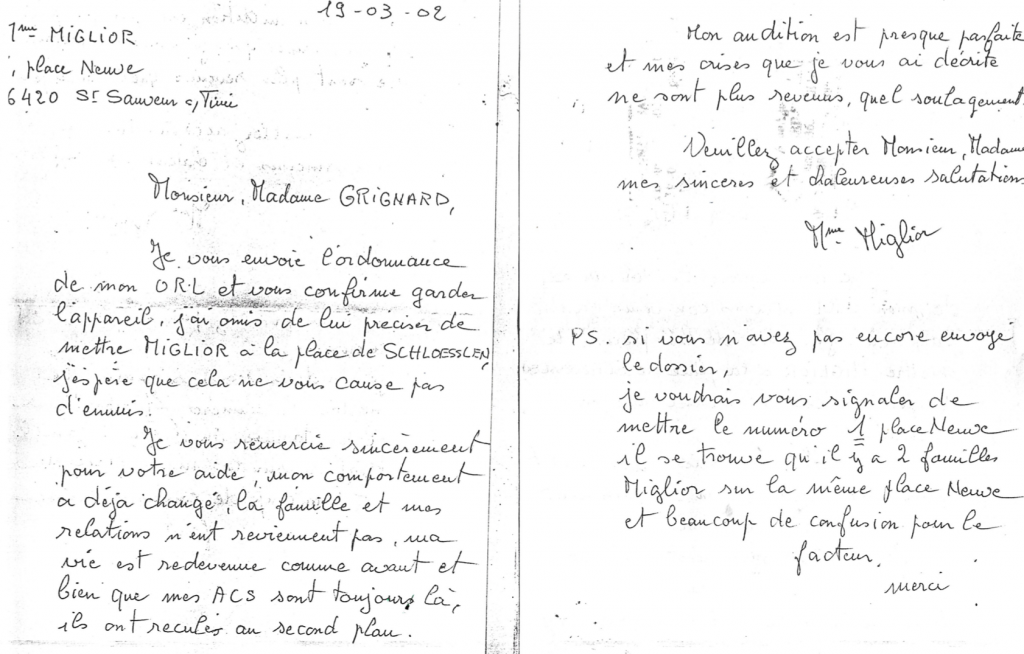 19-03-02
Mme MIGLIOR
, place Neuve
6420 St Sauveur s/Tini
Monsieur, Madame GRIGNARD,
Je vous envoie l'ordonnance
de mon ORL et vous confirme garder
l'appareil, j'ai omis de lui préciser de
mettre MIGLIOR à la place de SCHLOESSLEN,
j'espère que cela ne vous cause pas
d'ennuis.
Je vous remercie sincèrement
pour votre aide, mon comportement
a déjà changé, la famille et mes
relations n'ent reviennent pas, ma
vie est redevenue comme avant et
bien que mes ACS sont toujours là,
ils ont reculés au second plan.
Mon audition est presque parfaite
et mes crises que je vous ai décrite
ne sont plus revenus, quel soulagement.
Veuillez accepter Monsieur, Madame
mes sinceres et chaleureuses salutations
Mme Miglior
PS. si vous n'avez pas encore envoyé
le dossier,
je voudrais vous signaler de
mettre le numéro 1 place Neuve
il se trouve qu'il y a 2 familles
Miglior sur la même place Neuve
et beaucoup de confusion pour le
facteur.
merci